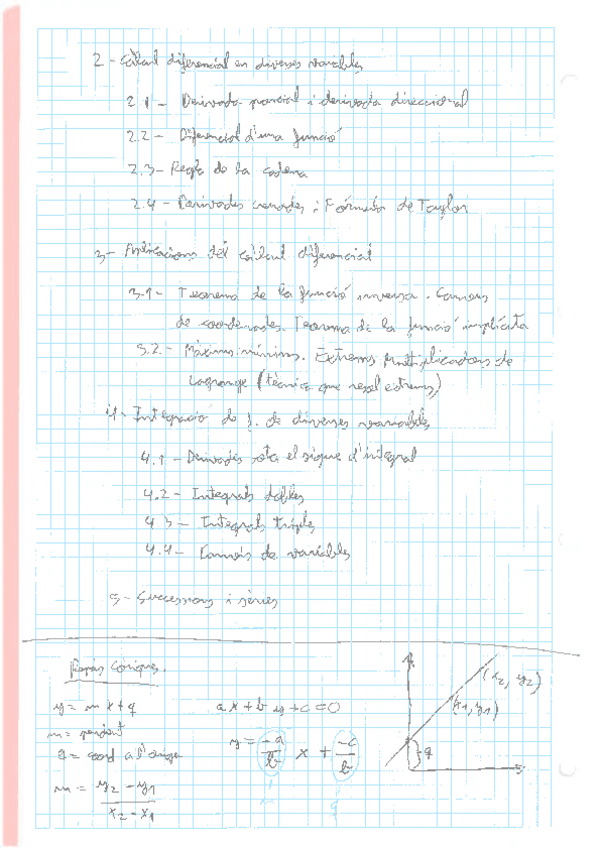 2 - Càlcul diferencial en diverses variables
2.1 - Derivada parcial i derivada direccional
2.2 - Diferencial d'una funció
2.3 - Regla de la cadena
2.4 - Derivades creuades i Fórmula de Taylor
3 - Aplicacions del càlcul diferencial
3.1 - Teorema de la funció inversa. Canvis
de coordenades. Teorema de la funció implícita
3.2 - Màxims mínims. Extrems multiplicadors de
Lagrange (tècnica que resol extrems)
4 - Integració de f. de diverses variables
4.1 - Derivades sota el signe d'integral
4.2 - Integrals dobles
4.3 - Integrals triples
4.4 - Canvis de variables
5 - Successions i sèries
Repàs Còniques
y = m x + q
ax + by + c = 0
m = pendent
q = coord a l'origen
y = -a/b x + -c/b
m = y2 - y1 / x2 - x1
(x2, y2)
(x1, y1)
q